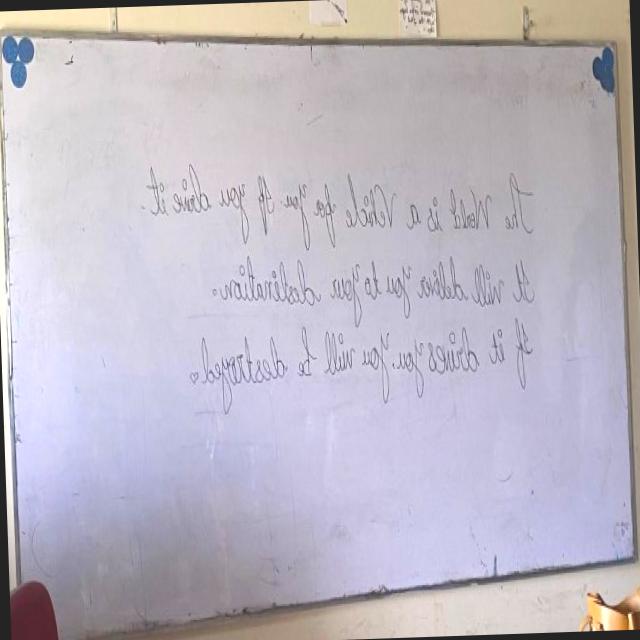 The World is a Vehicle for you. If you drive it.
It will deliver you to you destination.
If it drives you. you will be destroyed.